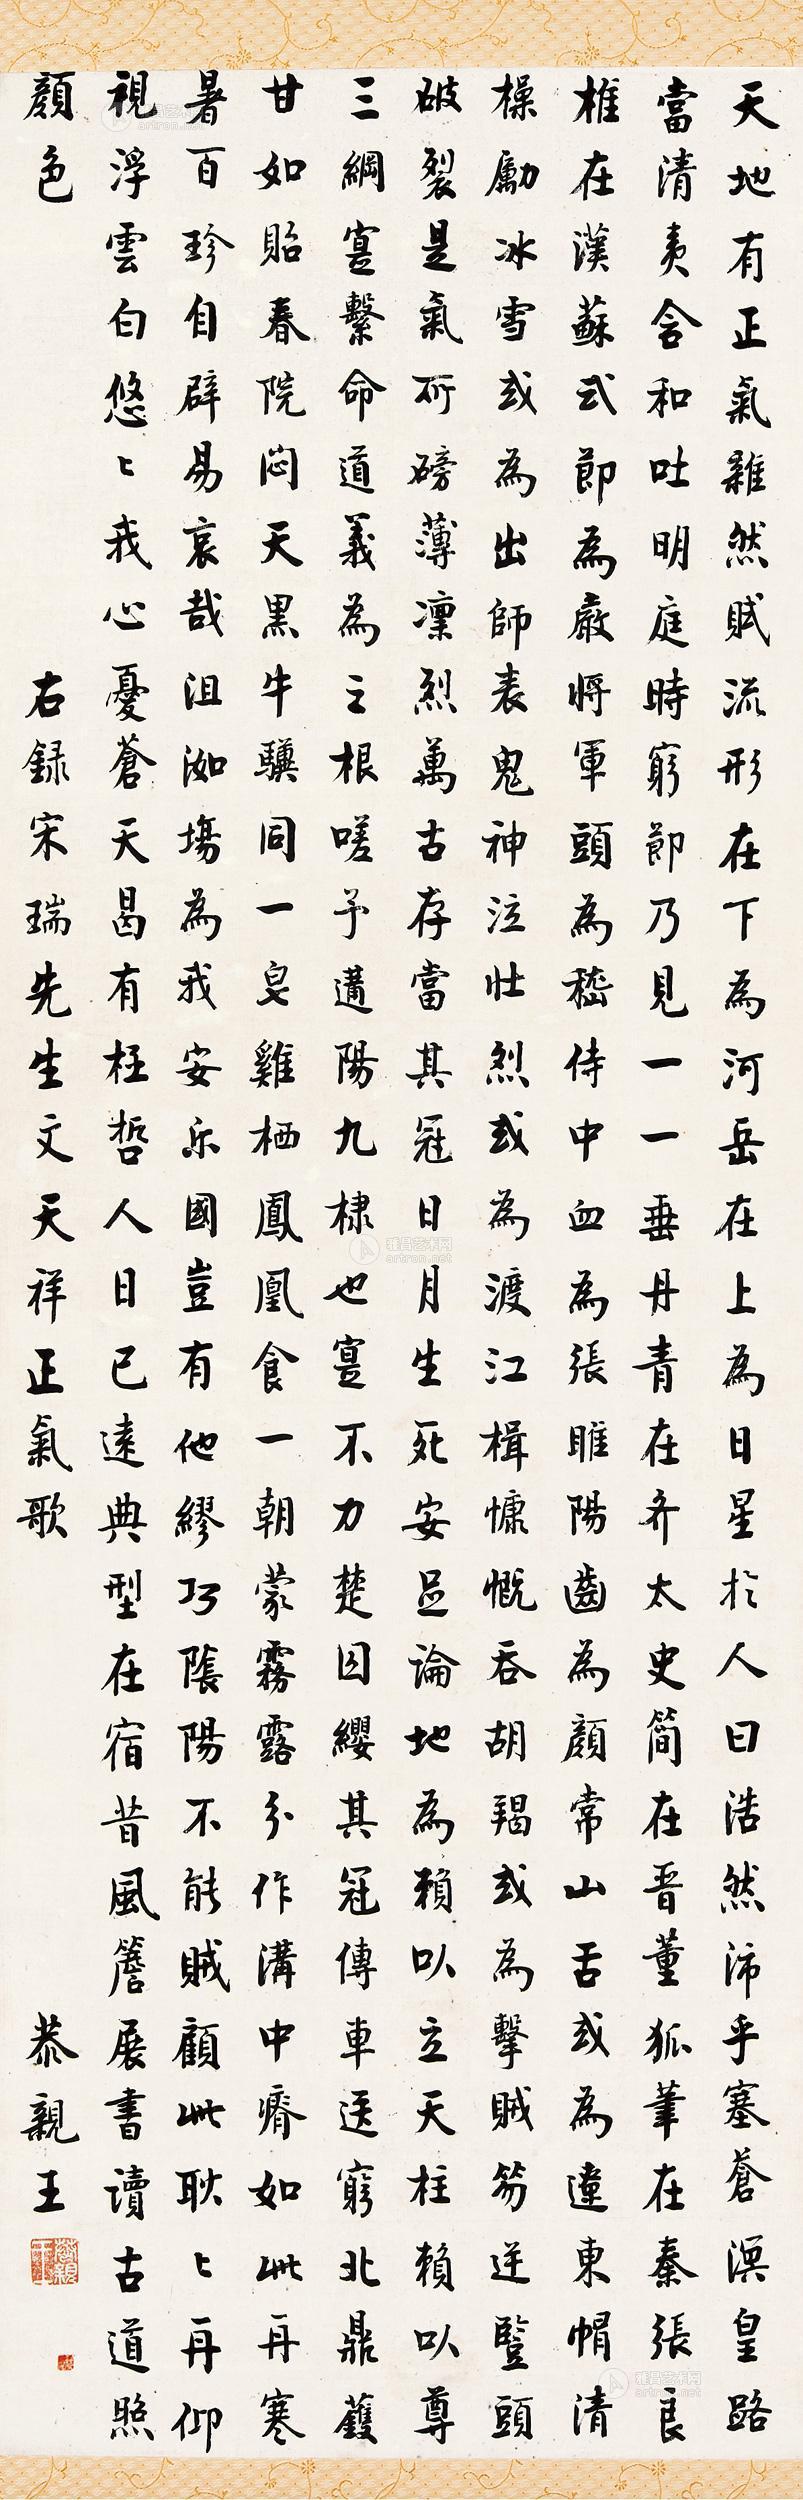 天地有正氣雜然賦流形在下為河岳在上為日星於人曰浩然沛乎塞蒼溟皇路
當清夷含和吐明庭時窮節乃見一一垂丹青在齐太史簡在晋董狐筆在秦張良
椎在漢蘇武節為嚴將軍頭為嵇侍中血為張睢陽齒為顏常山舌或為遼東帽清
操勵冰雪或為出師表鬼神泣壯烈或為渡江楫慷慨吞胡羯或為擊賊笏逆豎頭
破裂是氣所磅薄凜烈萬古存當其冠日月生死安足論地為賴以立天柱賴以尊
三綱寔繫命道義為之根嗟予遘陽九棣也寔不力楚囚纓其冠傳車送窮北鼎鑊
甘如貽春院悶天黑牛驥同一皂雞栖鳳凰食一朝蒙霧露分作溝中瘠如此再寒
暑百珍自辟易哀哉沮洳場為我安乐國豈有他繆巧陰陽不能賊顧此耿々再仰
視浮雲白悠々我心憂蒼天曷有枉哲人日已遠典型在宿昔風簷展書讀古道照
顏色
右録宋瑞先生文天祥正氣歌
恭親王
雅昌艺术网
artron.net
雅昌艺术网
artron.net
雅昌艺术网
artron.net